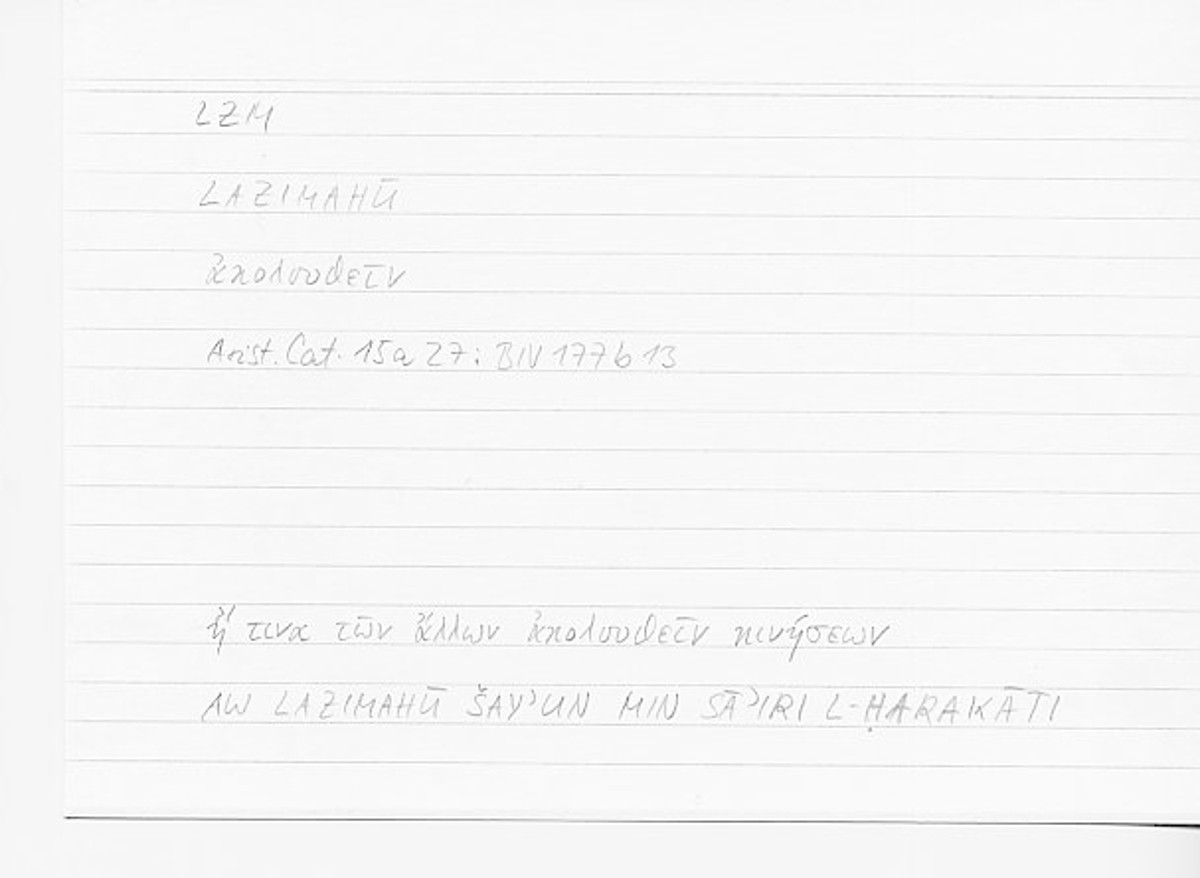 LZM
LAZIMAHŪ
ἀκολουθεῖν
Arist. Cat. 15a 27; BN 177b 13
ἤ τινα τῶν ἄλλων ἀκολουθεῖν κινήσεων
AW LAZIMAHŪ ŠAY'UN MIN SĀ'IRI L-ḤARAKĀTI